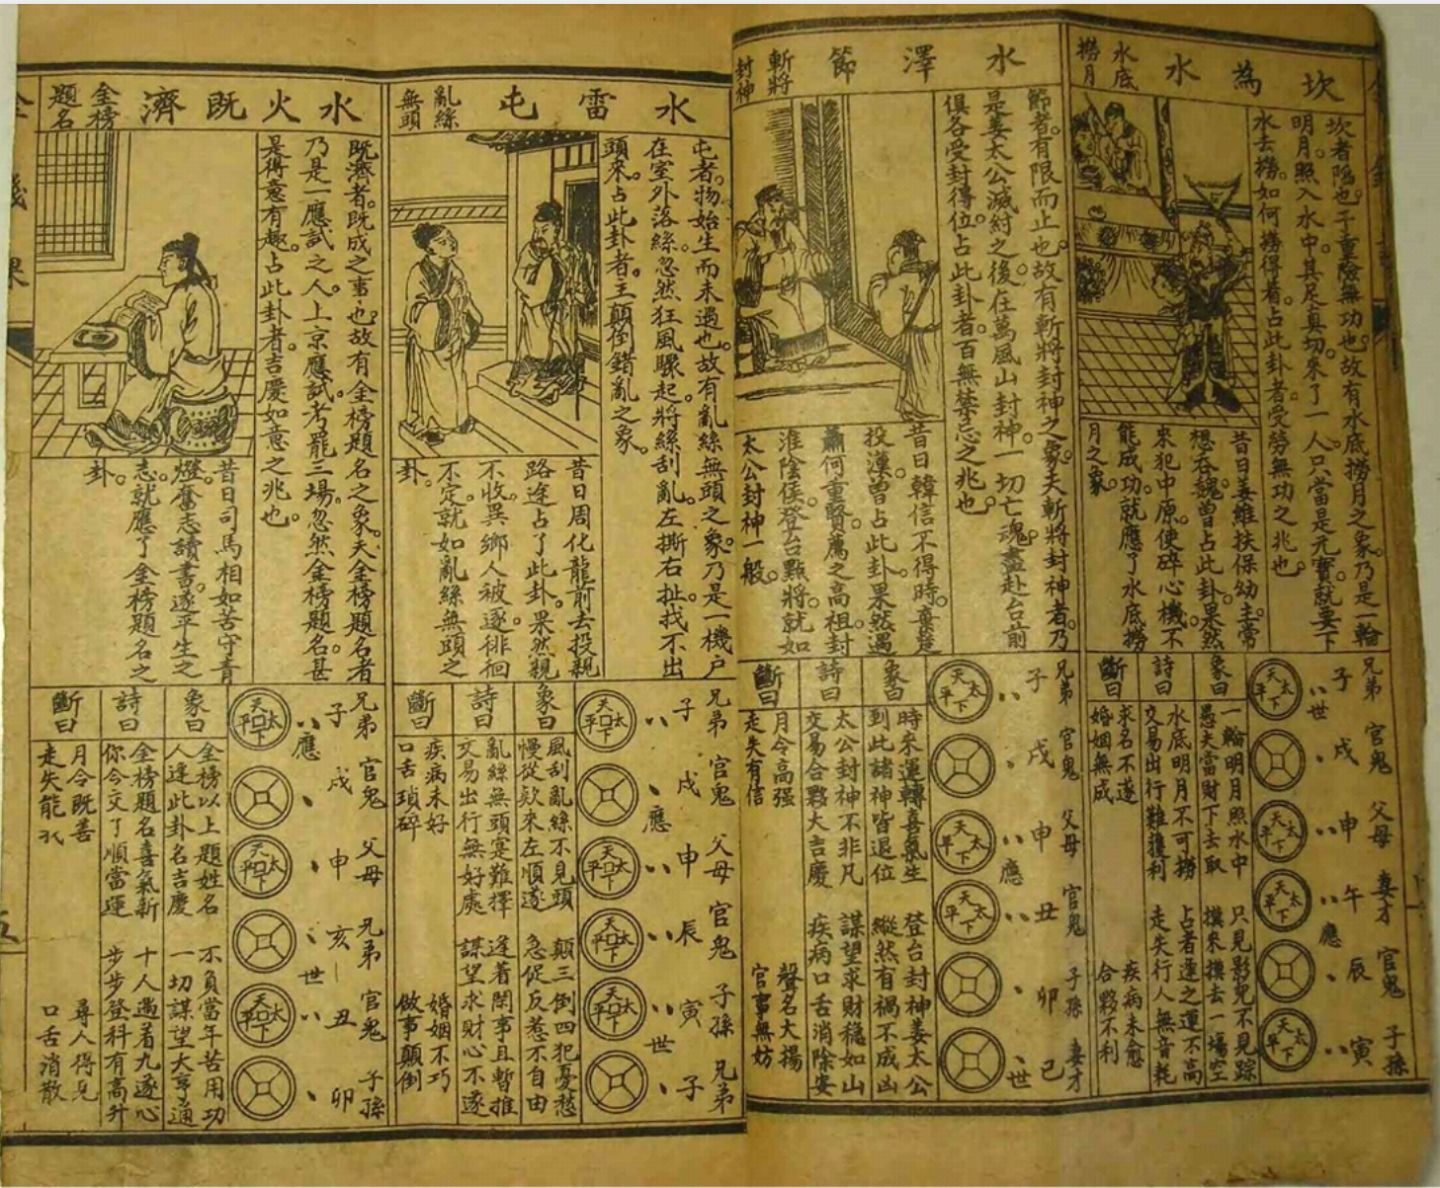 坎為水
水底
撈月
坎者陷也于重險無功也故有水底撈月之象乃是一輪
明月照入水中其足真切來了一人只當是元寶就要下
水去撈如何撈得着占此卦者受勞無功之兆也
昔日姜維扶保幼主常
想吞魏曾占此卦果然
來犯中原使碎心機不
能成功就應了水底撈
月之象
兄弟 子 世
官鬼 戌
父母 申
妻才 午 應
官鬼 辰
子孫 寅
太平天下
象曰
一輪明月照水中 只見影兒不見踪
愚夫當財下去取 摸來摸去一場空
詩曰
水底明月不可撈 占者逢之運不高
交易出行難獲利 走失行人無音耗
斷曰
求名不遂 疾病未愈
婚姻無成 合夥不利
水澤節
斬將
封神
節者有限而止也故有斬將封神之象夫斬將封神者乃
是姜太公滅紂之後在萬風山封神一切亡魂盡赴台前
俱各受封得位占此卦者百無禁忌之兆也
昔日韓信不得時棄楚
投漢曾占此卦果然遇
蕭何重賢薦之高祖封
淮陰侯登台點將就如
太公封神一般
兄弟 子
官鬼 戌
父母 申 應
官鬼 丑
子孫 卯
妻才 巳 世
太平天下
象曰
時來運轉喜氣生 登台封神姜太公
到此諸神皆退位 縱然有禍不成凶
詩曰
太公封神不非凡 謀望求財穩如山
交易合夥大吉慶 疾病口舌消除安
斷曰
月令高强 聲名大揚
走失有信 官事無妨
水雷屯
亂絲
無頭
屯者物始生而未通也故有亂絲無頭之象乃是一機户
在室外洛絲忽然狂風驟起將絲刮亂左撕右扯找不出
頭來占此卦者主顛倒錯亂之象
昔日周化龍前去投親
路途占了此卦果然親
不收異鄉人被逐徘徊
不定就如亂絲無頭之
卦
兄弟 子
官鬼 戌 應
父母 申
官鬼 辰
子孫 寅 世
兄弟 子
太平天下
象曰
風刮亂絲不見頭 顛三倒四犯憂愁
慢從款來左順遂 急促反惹不自由
詩曰
亂絲無頭寔難擇 逢着閑事且暫推
交易出行無好處 謀望求財心不遂
斷曰
疾病未好 婚姻不巧
口舌瑣碎 做事顛倒
水火既濟
金榜
題名
既濟者既成之事也故有金榜題名之象夫金榜題名者
乃是一應試之人上京應試考罷三場忽然金榜題名甚
是得意有趣占此卦者吉慶如意之兆也
昔日司馬相如苦守青
燈奮志讀書遂平生之
志就應了金榜題名之
卦
兄弟 子 應
官鬼 戌
父母 申
兄弟 亥 世
官鬼 丑
子孫 卯
太平天下
象曰
金榜以上題姓名 不負當年苦用功
人逢此卦名吉慶 一切謀望大亨通
詩曰
金榜題名喜氣新 十人遇着九遂心
你今交了順當運 步步登科有高升
斷曰
月令既善 尋人得見
走失能 口舌消散
五